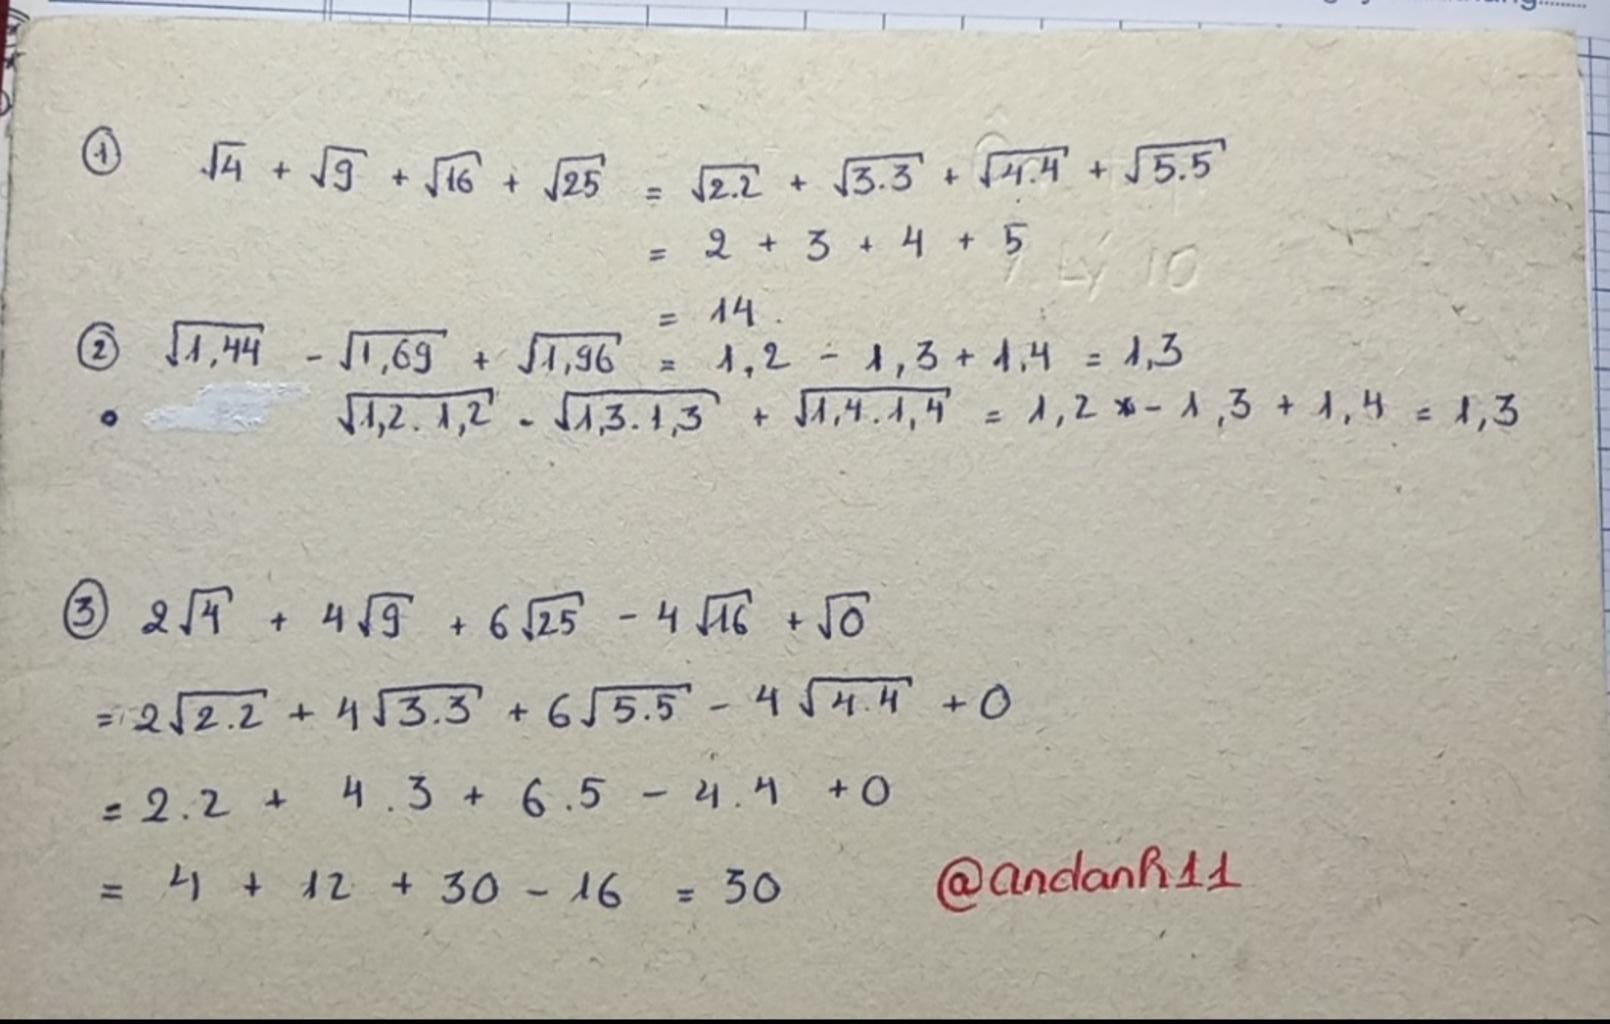 ① √4 + √9 + √16 + √25 = √2.2 + √3.3 + √4.4 + √5.5
= 2 + 3 + 4 + 5
= 14.
② √1,44 - √1,69 + √1,96 = 1,2 - 1,3 + 1,4 = 1,3
• √1,2.1,2 - √1,3.1,3 + √1,4.1,4 = 1,2 - 1,3 + 1,4 = 1,3
③ 2√4 + 4√9 + 6√25 - 4√16 + √0
= 2√2.2 + 4√3.3 + 6√5.5 - 4√4.4 + 0
= 2.2 + 4.3 + 6.5 - 4.4 + 0
= 4 + 12 + 30 - 16 = 30
@andanh11